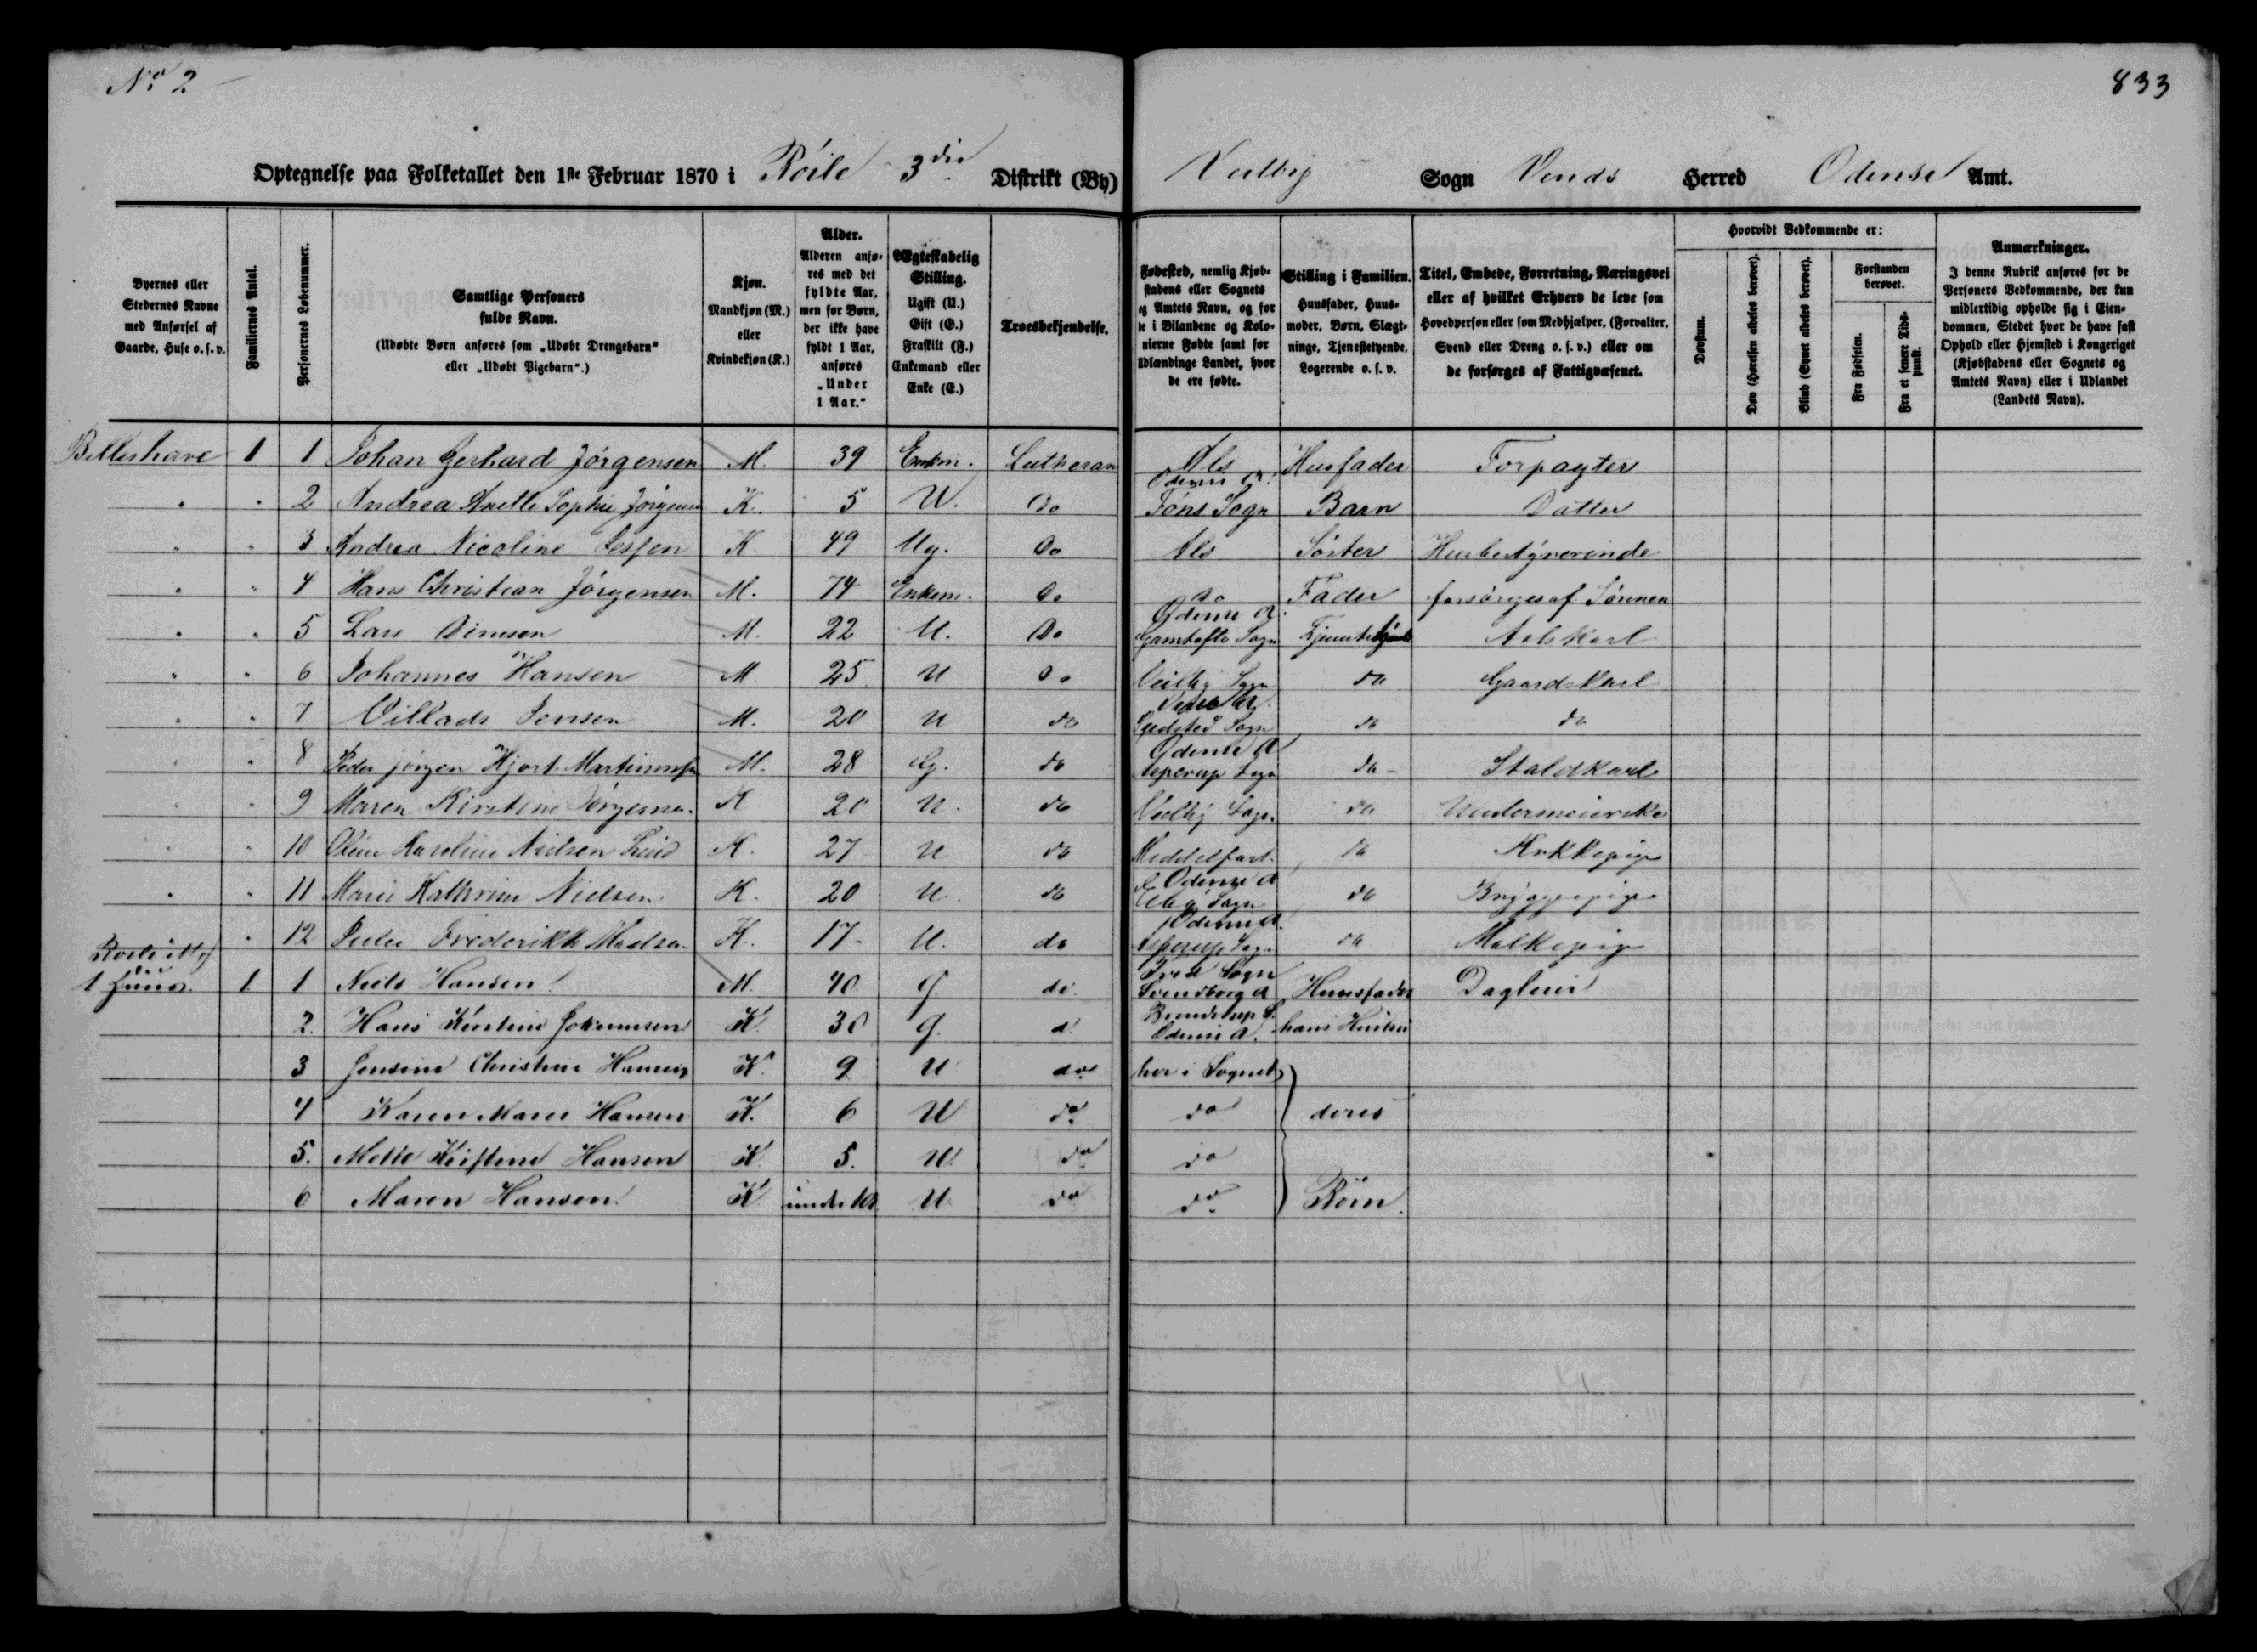 No 2
833
Optegnelse paa Folketallet den 1ste Februar 1870 i Röile 3die Distrikt (By) Veilby Sogn Vends Herred Odense Amt.
Byernes eller Stedernes Navne med Anførsel af Gaarde, Huse o. s. v.
Familiernes Antal.
Personernes Løbenummer.
Samtlige Personers fulde Navn.
(Udøbte Børn anføres som „Udøbt Drengebarn“ eller „Udøbt Pigebarn“.)
Kjøn.
Mandkjøn (M.) eller Kvindekjøn (K.)
Alder.
Alderen anføres med det fyldte Aar, men for Børn, der ikke have fyldt 1 Aar, anføres „Under 1 Aar.“
Ægteskabelig Stilling.
Ugift (U.) Gift (G.) Fraskilt (F.) Enkemand eller Enke (E.)
Troesbekjendelse.
Fødested, nemlig Kjøbstadens eller Sognets og Amtets Navn, og for de i Bilandene og Kolonierne Fødte samt for Udlændinge Landet, hvor de ere fødte.
Stilling i Familien.
Huusfader, Huusmoder, Børn, Slægtninge, Tjenestetyende, Logerende o. s. v.
Titel, Embede, Forretning, Næringsvei eller af hvilket Erhverv de leve som Hovedperson eller som Medhjælper, (Forvalter, Svend eller Dreng o. s. v.) eller om de forsørges af Fattigvæsenet.
Hvorvidt Vedkommende er:
Døvstum.
Døv (Hørelsen aldeles berøvet).
Blind (Synet aldeles berøvet).
Forstanden berøvet.
Fra Fødselen.
Fra et senere Tidspunkt.
Anmærkninger.
I denne Rubrik anføres for de Personers Vedkommende, der kun midlertidig opholde sig i Eiendommen, Stedet hvor de have fast Ophold eller Hjemsted i Kongeriget (Kjøbstadens eller Sognets og Amtets Navn) eller i Udlandet (Landets Navn).
Billeshave 1 1 Johan Gerhard Jörgensen M. 39 Enkm. Lutheran Als Husfader Forpagter
" " 2 Andrea Anette Sophie Jörgensen K. 5 U. Do Odense A. Föns Sogn Barn Datter
" " 3 Andrea Nicoline Jessen K. 49 Ug. Do Als Söster Husbestyrerinde
" " 4 Hans Christian Jörgensen M. 74 Enkem. Do Do Fader forsörges af Sönnen
" " 5 Lars Dinesen M. 22 U. Do Odense A. Gamtofte Sogn Avlskarl
" " 6 Johannes Hansen M. 25 U Do Veilby Sogn do Gaardskarl
" " 7 Villads Jensen M. 20 U do Sogn do do
" " 8 Peder Jörgen Hjort M. 28 G. do Odense A Asperup Sogn do Staldkarl
" " 9 Maren Kirstine Jörgensen K 20 U. do Veilby Sogn do Undermeierske
" " 10 Karoline Nielsen K. 27 U do Middelfart do Kokkepige
" " 11 Marie Kathrine Nielsen K. 20 U. do Odense A Sogn do Bryggerspige
" 12 Julie Frederikke Madsen K. 17 U. do Odense A. Asperup Sogn do Malkepige
1 Huus. 1 1 Niels Hansen M. 40 G. do Sogn Svendborg A Huusfader Dagleier
2. Kirstine K. 30 G. d. Brenderup S. Odense A. hans Hustru
3 Jensine Christine Hansen K. 9 U do her i Sognet
4 Karen Marie Hansen K. 6 U do do deres
5. Mette Kirstine Hansen K 5. U. do do
6 Maren Hansen K under 1 Aar U do do Börn.